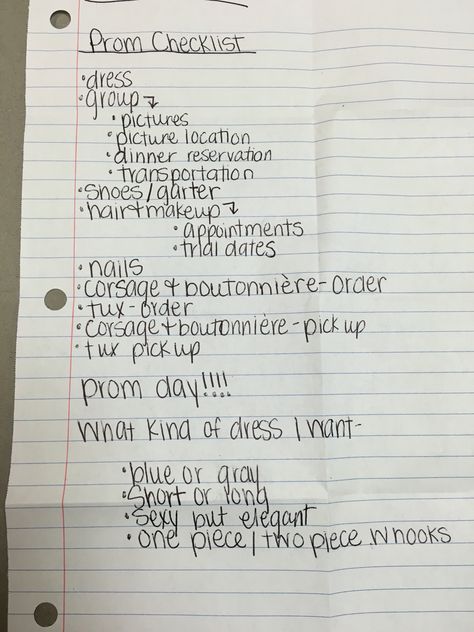 Prom Checklist
• dress
• group ↴
• pictures
• picture location
• dinner reservation
• transportation
• shoes/garter
• hair + makeup ↴
• appointments
• trial dates
• nails
• corsage + boutonnière - order
• tux - order
• corsage + boutonnière - pick up
• tux pick up
prom day!!!!
What kind of dress I want -
• blue or gray
• Short or long
• Sexy but elegant
• one piece / two piece w hooks